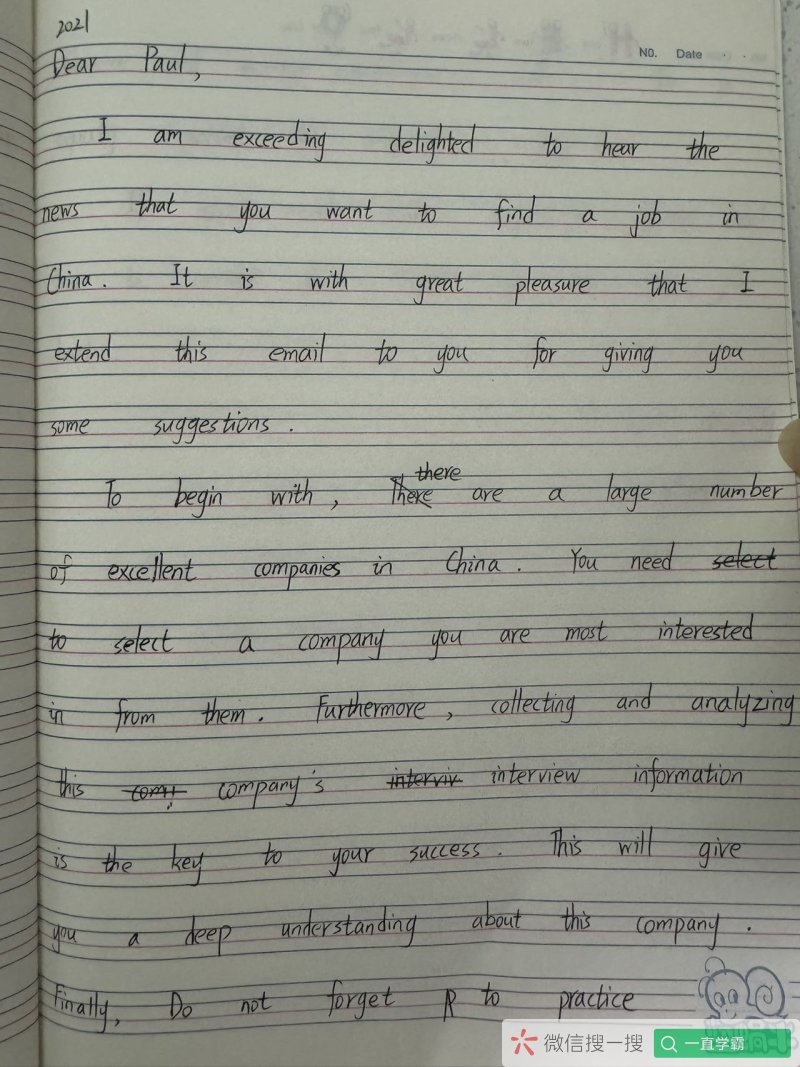 2021
NO. Date
Dear Paul,
I am exceeding delighted to hear the
news that you want to find a job in
China. It is with great pleasure that I
extend this email to you for giving you
some suggestions.
there
To begin with, There are a large number
of excellent companies in China. You need select
to select a company you are most interested
in from them. Furthermore, collecting and analyzing
this company's interview information
is the key to your success. This will give
you a deep understanding about this company.
Finally, Do not forget to practice
微信搜一搜 一直学霸